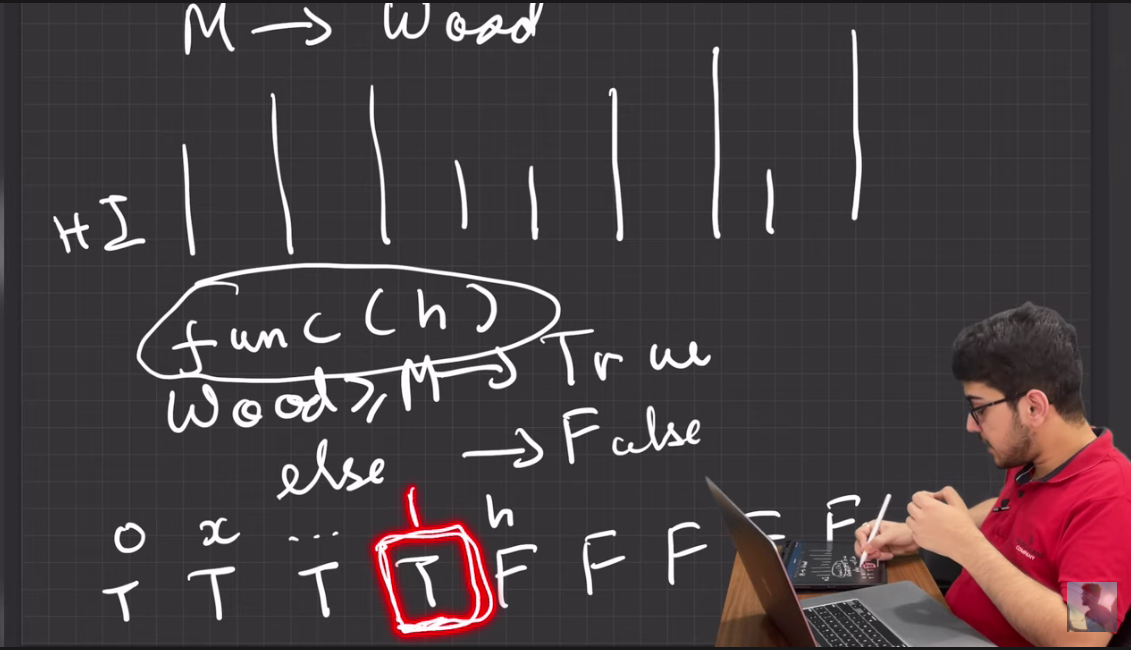 M → Wood
HI
func(h)
Wood ≥ M → True
else → False
l h
0 x ...
T T T T F F F F F
COMPANY